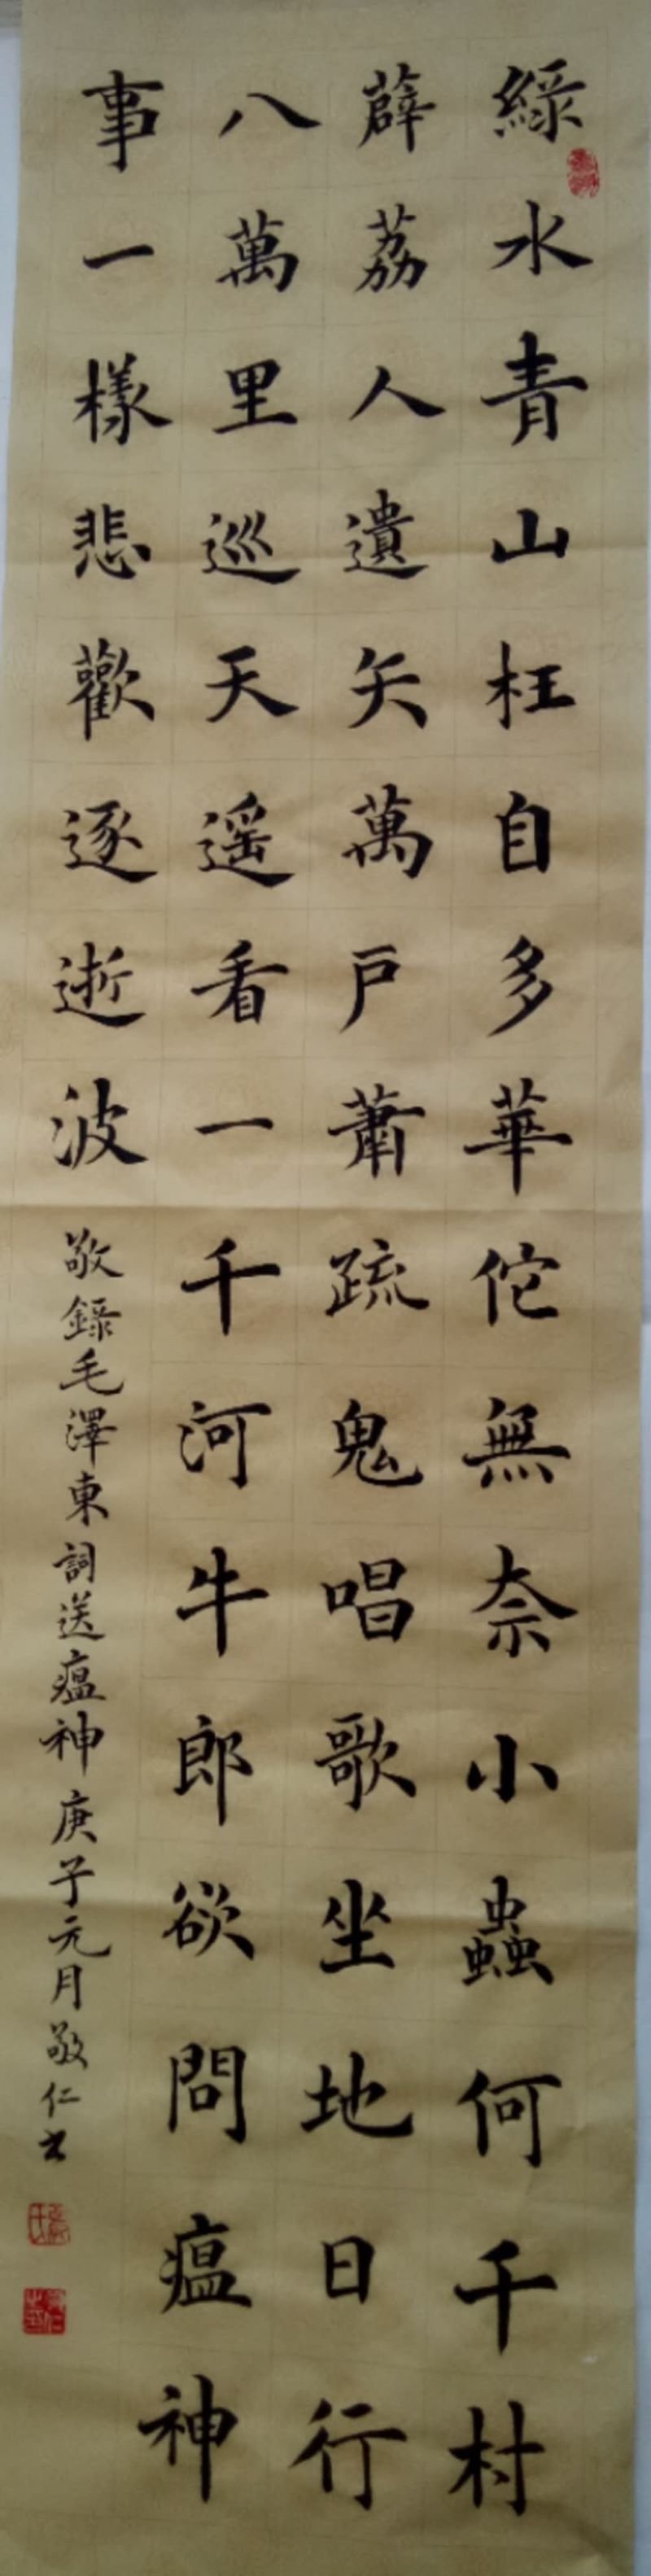 綠水青山枉自多華佗無奈小蟲何千村
薜荔人遺矢萬戶蕭疏鬼唱歌坐地日行
八萬里巡天遥看一千河牛郎欲問瘟神
事一樣悲歡逐逝波
敬錄毛澤東詞送瘟神庚子元月敬仁书